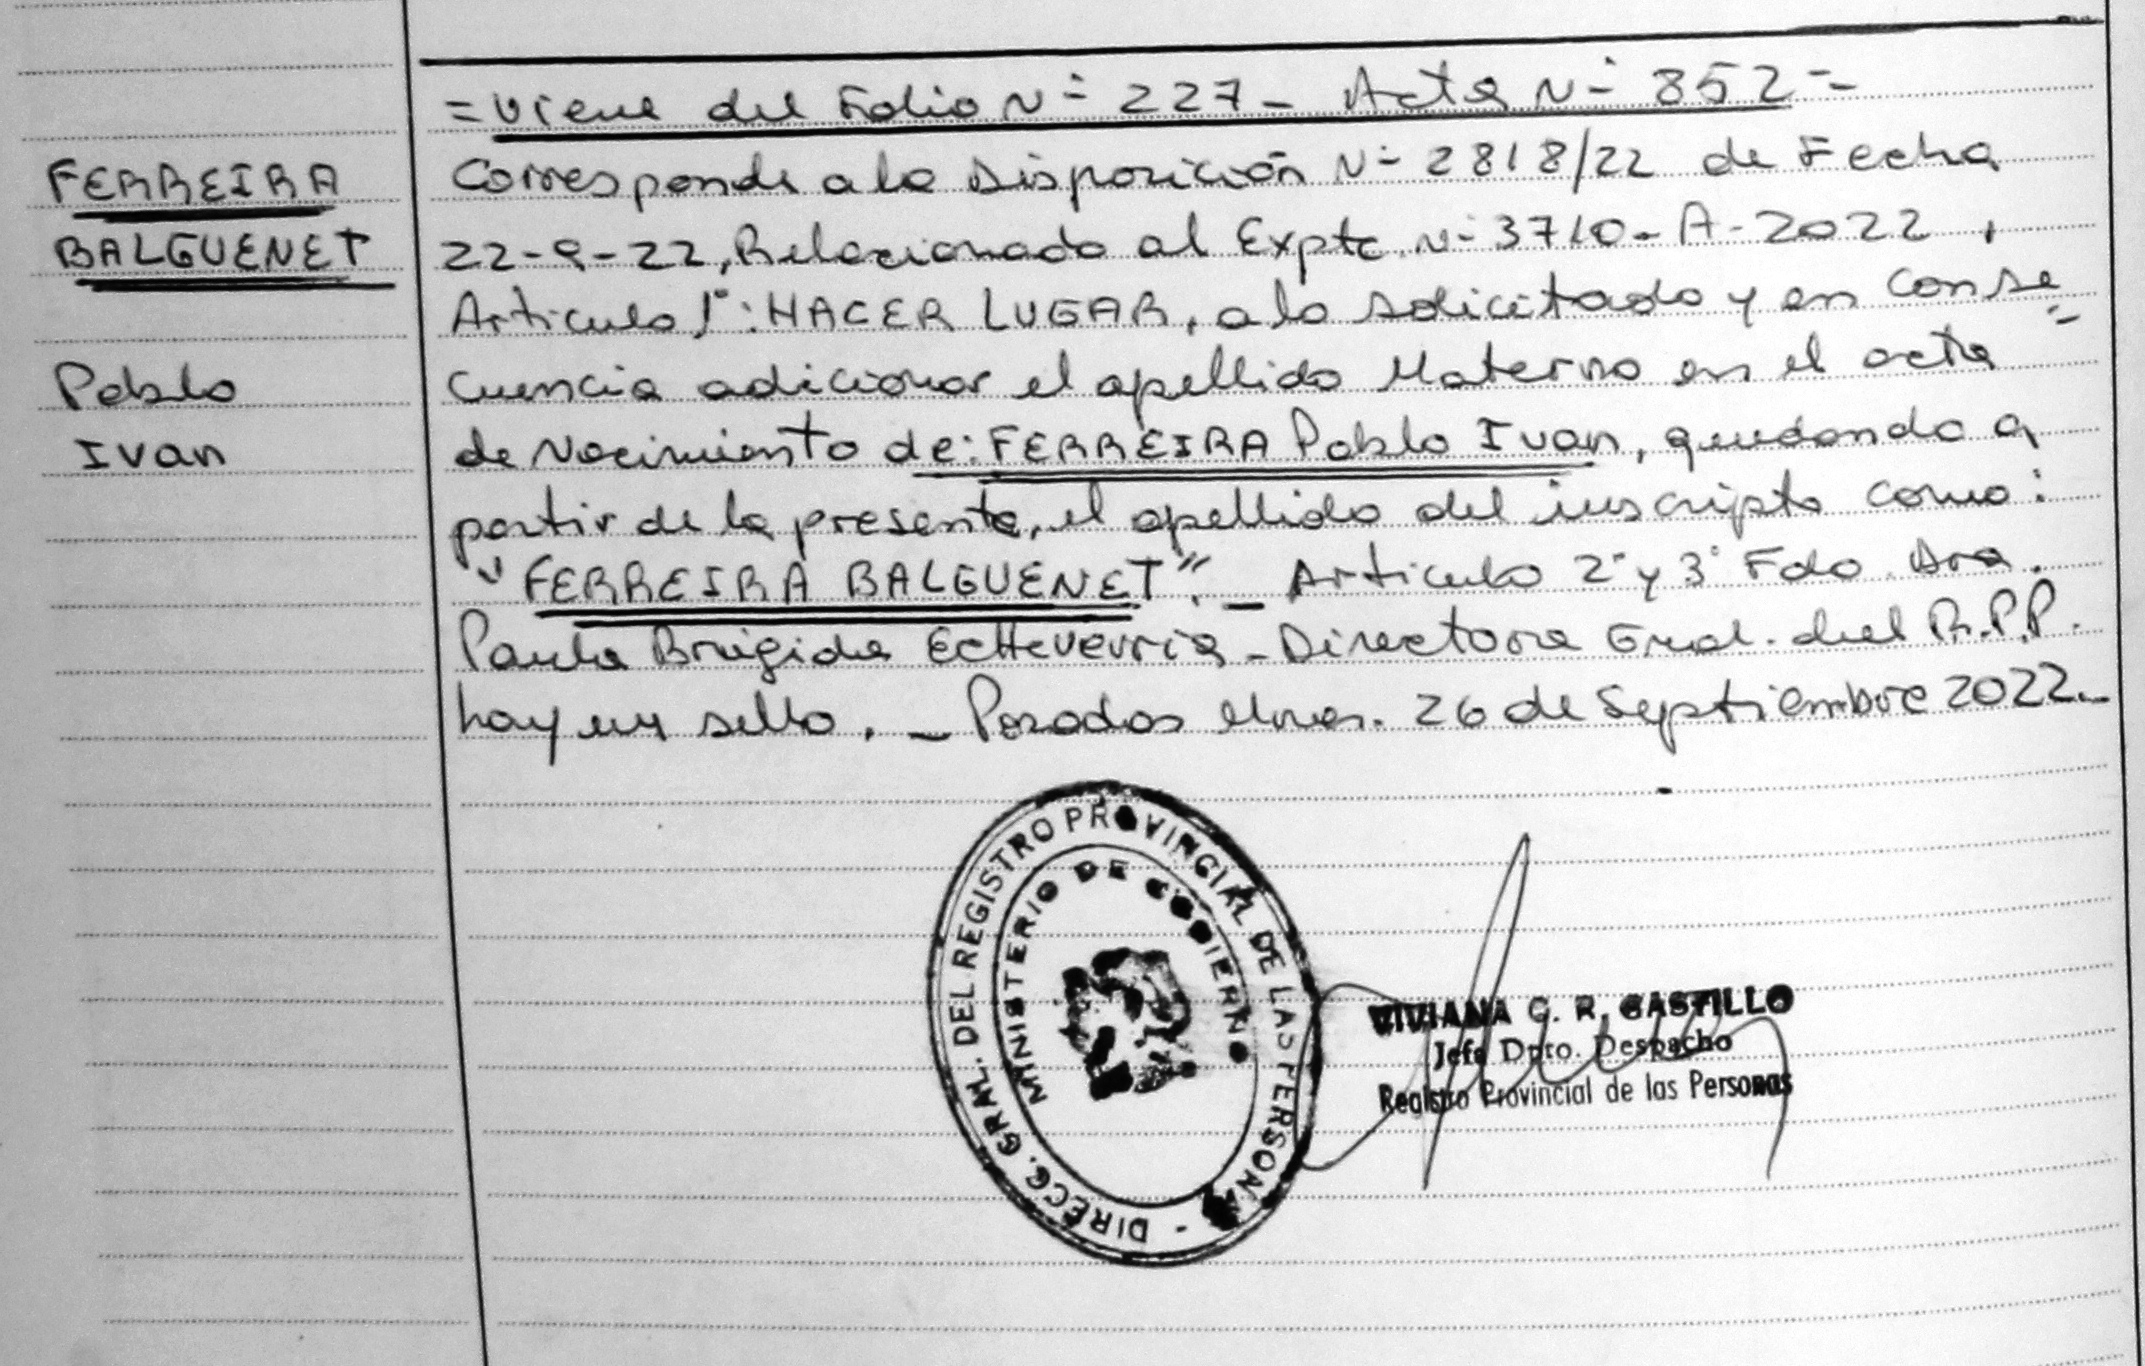 =Viene del Folio Nº 227- Acta Nº 852=-
FERREIRA
BALGUENET
Pablo
Ivan
Corresponde a la Disposición Nº 2818/22 de Fecha
22-9-22, Relacionado al Expte. Nº 3710-A-2022,
Articulo 1º: HACER LUGAR, a lo solicitado y en conse=
cuencia adicionar el apellido Materno en el acta
de Nacimiento de: FERREIRA Pablo Ivan, quedando a
partir de la presente, el apellido del inscripto como:
"FERREIRA BALGUENET".- Articulo 2º y 3º Fdo. Dra.
Paula Brigida Echeverria - Directora Gral. del R.P.P.
hay un sello. - Posadas Mnes. 26 de Septiembre 2022.-
DIRECC. GRAL. DEL REGISTRO PROVINCIAL DE LAS PERSONAS -
MINISTERIO DE GOBIERNO
VIVIANA G. R. CASTILLO
Jefa Dpto. Despacho
Registro Provincial de las Personas